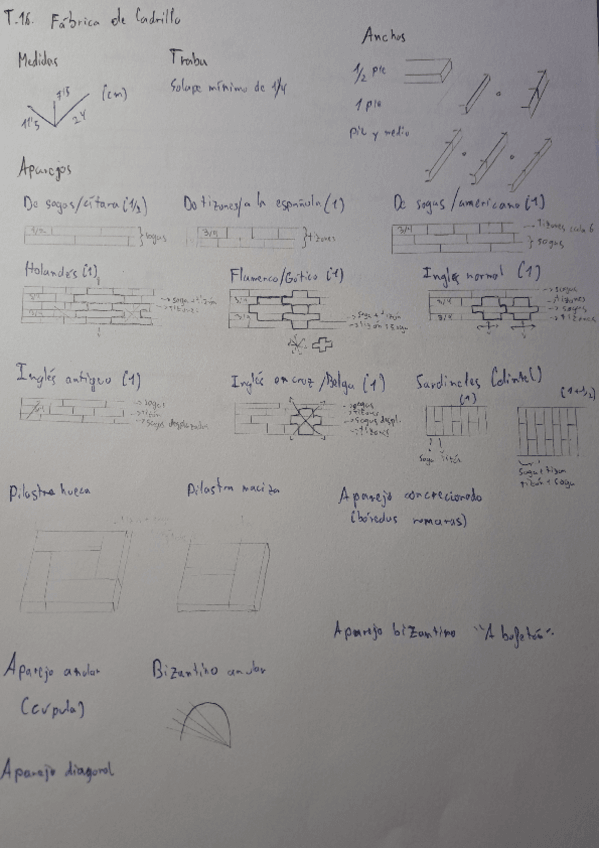 T.16. Fábrica de Ladrillo
Medidas
11'5
7'5
24
(cm)
Traba
Solape mínimo de 1/4
Anchos
1/2 pie
1 pie
pie y medio
Aparejos
De sogas/cítara (1/2)
1/2
sogas
De tizones/a la española (1)
3/4
tizones
De sogas/americano (1)
3/4
tizones cada 6
sogas
Holandés (1)
3/4
3/4
soga + tizón
tizones
Flamenco/Gótico (1)
3/4
3/4
soga + tizón
tizón + soga
Inglés normal (1)
3/4
3/4
sogas
tizones
sogas
tizones
Inglés antiguo (1)
sogas
tizón
sogas desplazadas
Inglés en cruz/Belga (1)
sogas
tizones
sogas despl.
tizones
Sardineles (dintel)
(1)
soga tizón
(1 + 1/2)
soga + tizón
tizón + soga
Pilastra hueca
Pilastra maciza
Aparejo concrecionado
(bóvedas romanas)
Aparejo bizantino "A bofetón"
Aparejo anular
(cúpula)
Bizantino anular
Aparejo diagonal